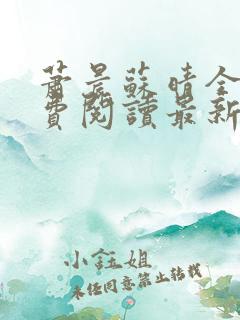 蕭晨蘇晴全
費閱讀最新
小鈺姐
未經同意禁止轉載